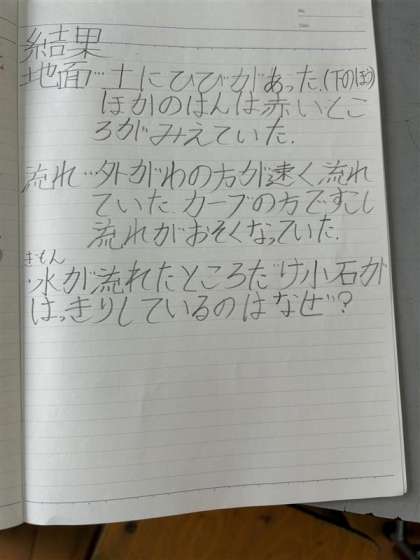 No.
Date
結果
地面…土にひびがあった.(下のほう)
ほかのはんは赤いとこ
ろがみえていた.
流れ…外がわの方が速く流れ
ていた.カーブの方ですこし
流れがおそくなっていた.
ぎもん
・水が流れたところだけ小石が
はっきりしているのはなぜ?